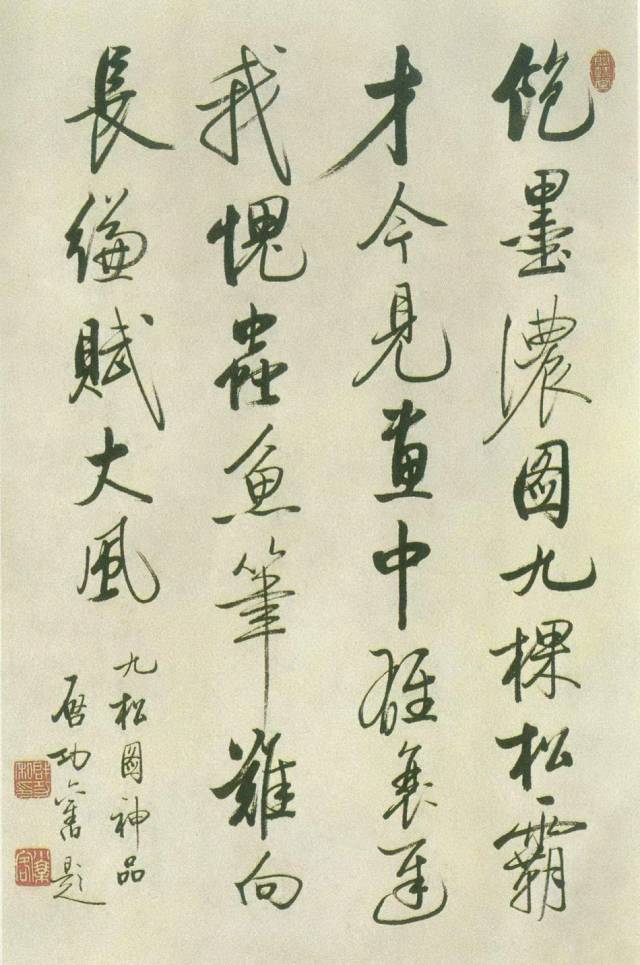 飽墨濃圖九棵松霸
才今見畫中雄衰遲
我愧蟲魚筆難向
長縑賦大風
九松圖神品
啓功題